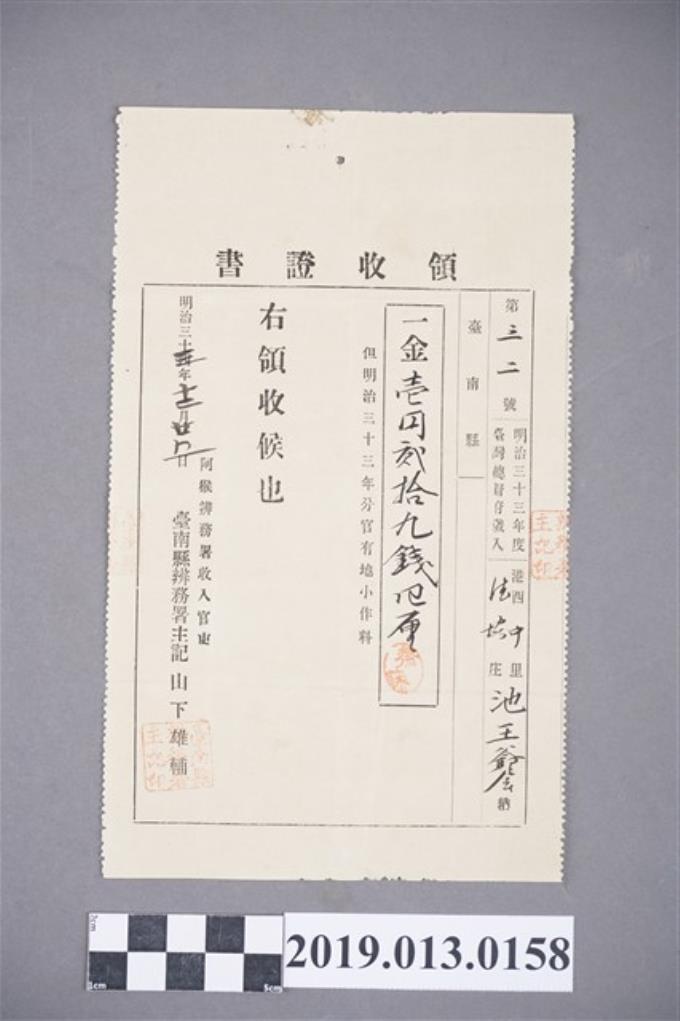 領收證書
第三二號
明治三十三年度
臺灣總督府歲入
港西中里
庄
池王爺會納
臺南縣
一金壱円弐拾九錢四厘
但明治三十三年分官有地小作料
右領收候也
明治三十年十月日
阿猴辨務署收入官吏
臺南縣辨務署主記山下雄輔
2cm
1cm
5cm
2019.013.0158